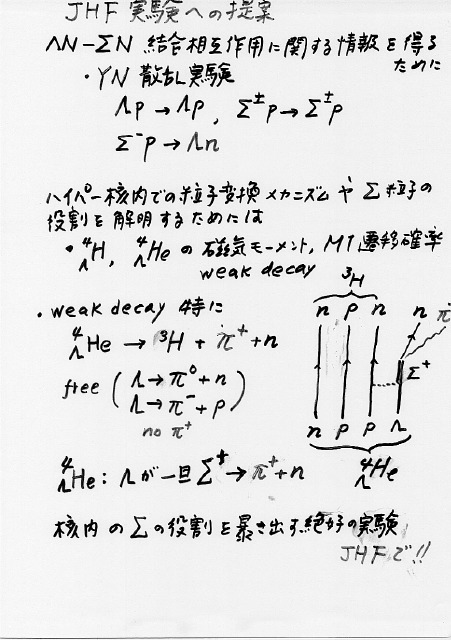 JHF 実験への提案
ΛN-ΣN 結合相互作用に関する情報を得る
ために
・YN 散乱実験
Λp → Λp, Σ±p → Σ±p
Σ⁻p → Λn
ハイパー核内での粒子変換メカニズムやΣ粒子の
役割を解明するためには
・⁴ΛH, ⁴ΛHe の磁気モーメント, M1遷移確率
weak decay
・weak decay 特に
⁴ΛHe → ³H + π⁺ + n
free ( Λ → π⁰ + n
Λ → π⁻ + p )
no π⁺
³H
n p n n π
Σ⁺
n p p Λ
⁴ΛHe
⁴ΛHe : Λが一旦Σ⁺ → π⁺ + n
核内のΣの役割を暴き出す絶好の実験
JHFで!!